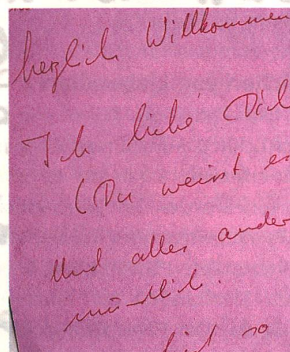 herzlich Willkommen
Ich liebe Dich
(Du weisst es
Und alles ander
mündlich.
so